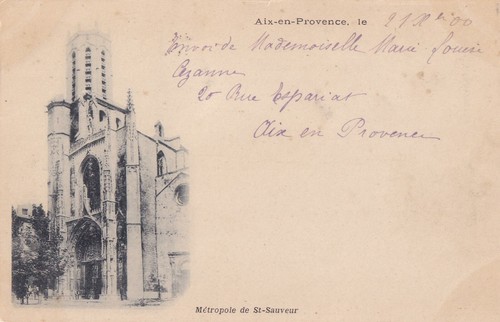 Aix-en-Provence, le 21 Xbre 00
Envoi de Mademoiselle Marie Louise
Cézanne
20 Rue Espariat
Aix en Provence
Métropole de St-Sauveur